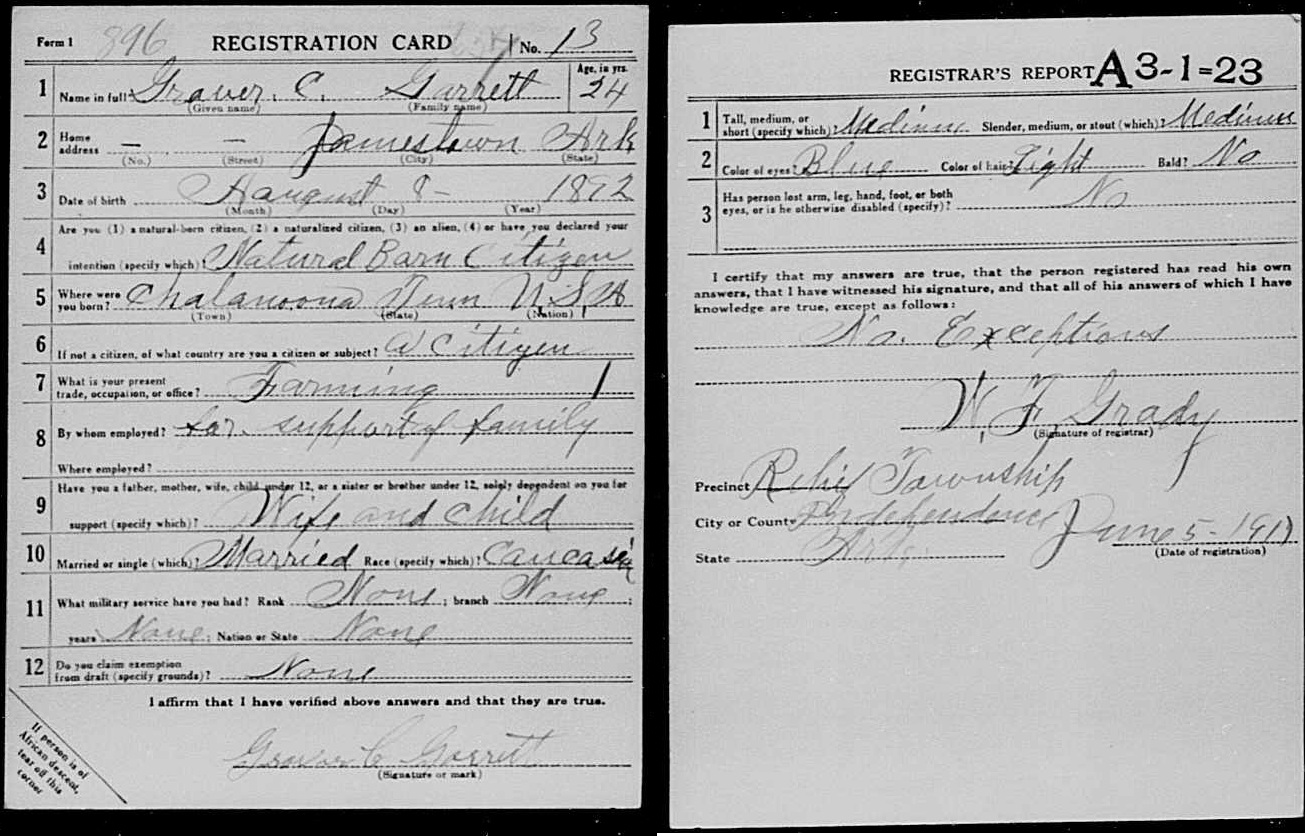 Form 1 896 REGISTRATION CARD No. 13
1 Name in full Graver. C. Garrett Age, in yrs. 24
(Given name) (Family name)
2 Home address — — Jamestown Ark
(No.) (Street) (City) (State)
3 Date of birth Haugust 8- 1892
(Month) (Day) (Year)
4 Are you (1) a natural-born citizen, (2) a naturalized citizen, (3) an alien, (4) or have you declared your
intention (specify which)? Natural Barn Citizen
5 Where were you born? Chalanoona Tenn U.S.A
(Town) (State) (Nation)
6 If not a citizen, of what country are you a citizen or subject? a Citizen
7 What is your present trade, occupation, or office? Farming 1
8 By whom employed? for. support of family
Where employed?
9 Have you a father, mother, wife, child under 12, or a sister or brother under 12, solely dependent on you for
support (specify which)? Wife and child
10 Married or single (which)? Married Race (specify which)? Caucasia
11 What military service have you had? Rank None ; branch None ;
years None ; Nation or State None
12 Do you claim exemption from draft (specify grounds)? None
I affirm that I have verified above answers and that they are true.
Grover C Garrett
(Signature or mark)
If person is of
African descent,
tear off this
corner
REGISTRAR'S REPORT A 3-1=23
1 Tall, medium, or short (specify which)? Medium Slender, medium, or stout (which)? Medium
2 Color of eyes Blue Color of hair? Light Bald? No
3 Has person lost arm, leg, hand, foot, or both
eyes, or is he otherwise disabled (specify)? No
I certify that my answers are true, that the person registered has read his own
answers, that I have witnessed his signature, and that all of his answers of which I have
knowledge are true, except as follows:
No. Exceptions
W. F. Grady
(Signature of registrar)
Precinct Township
City or County Independence June 5- 1917
State Ark. (Date of registration)